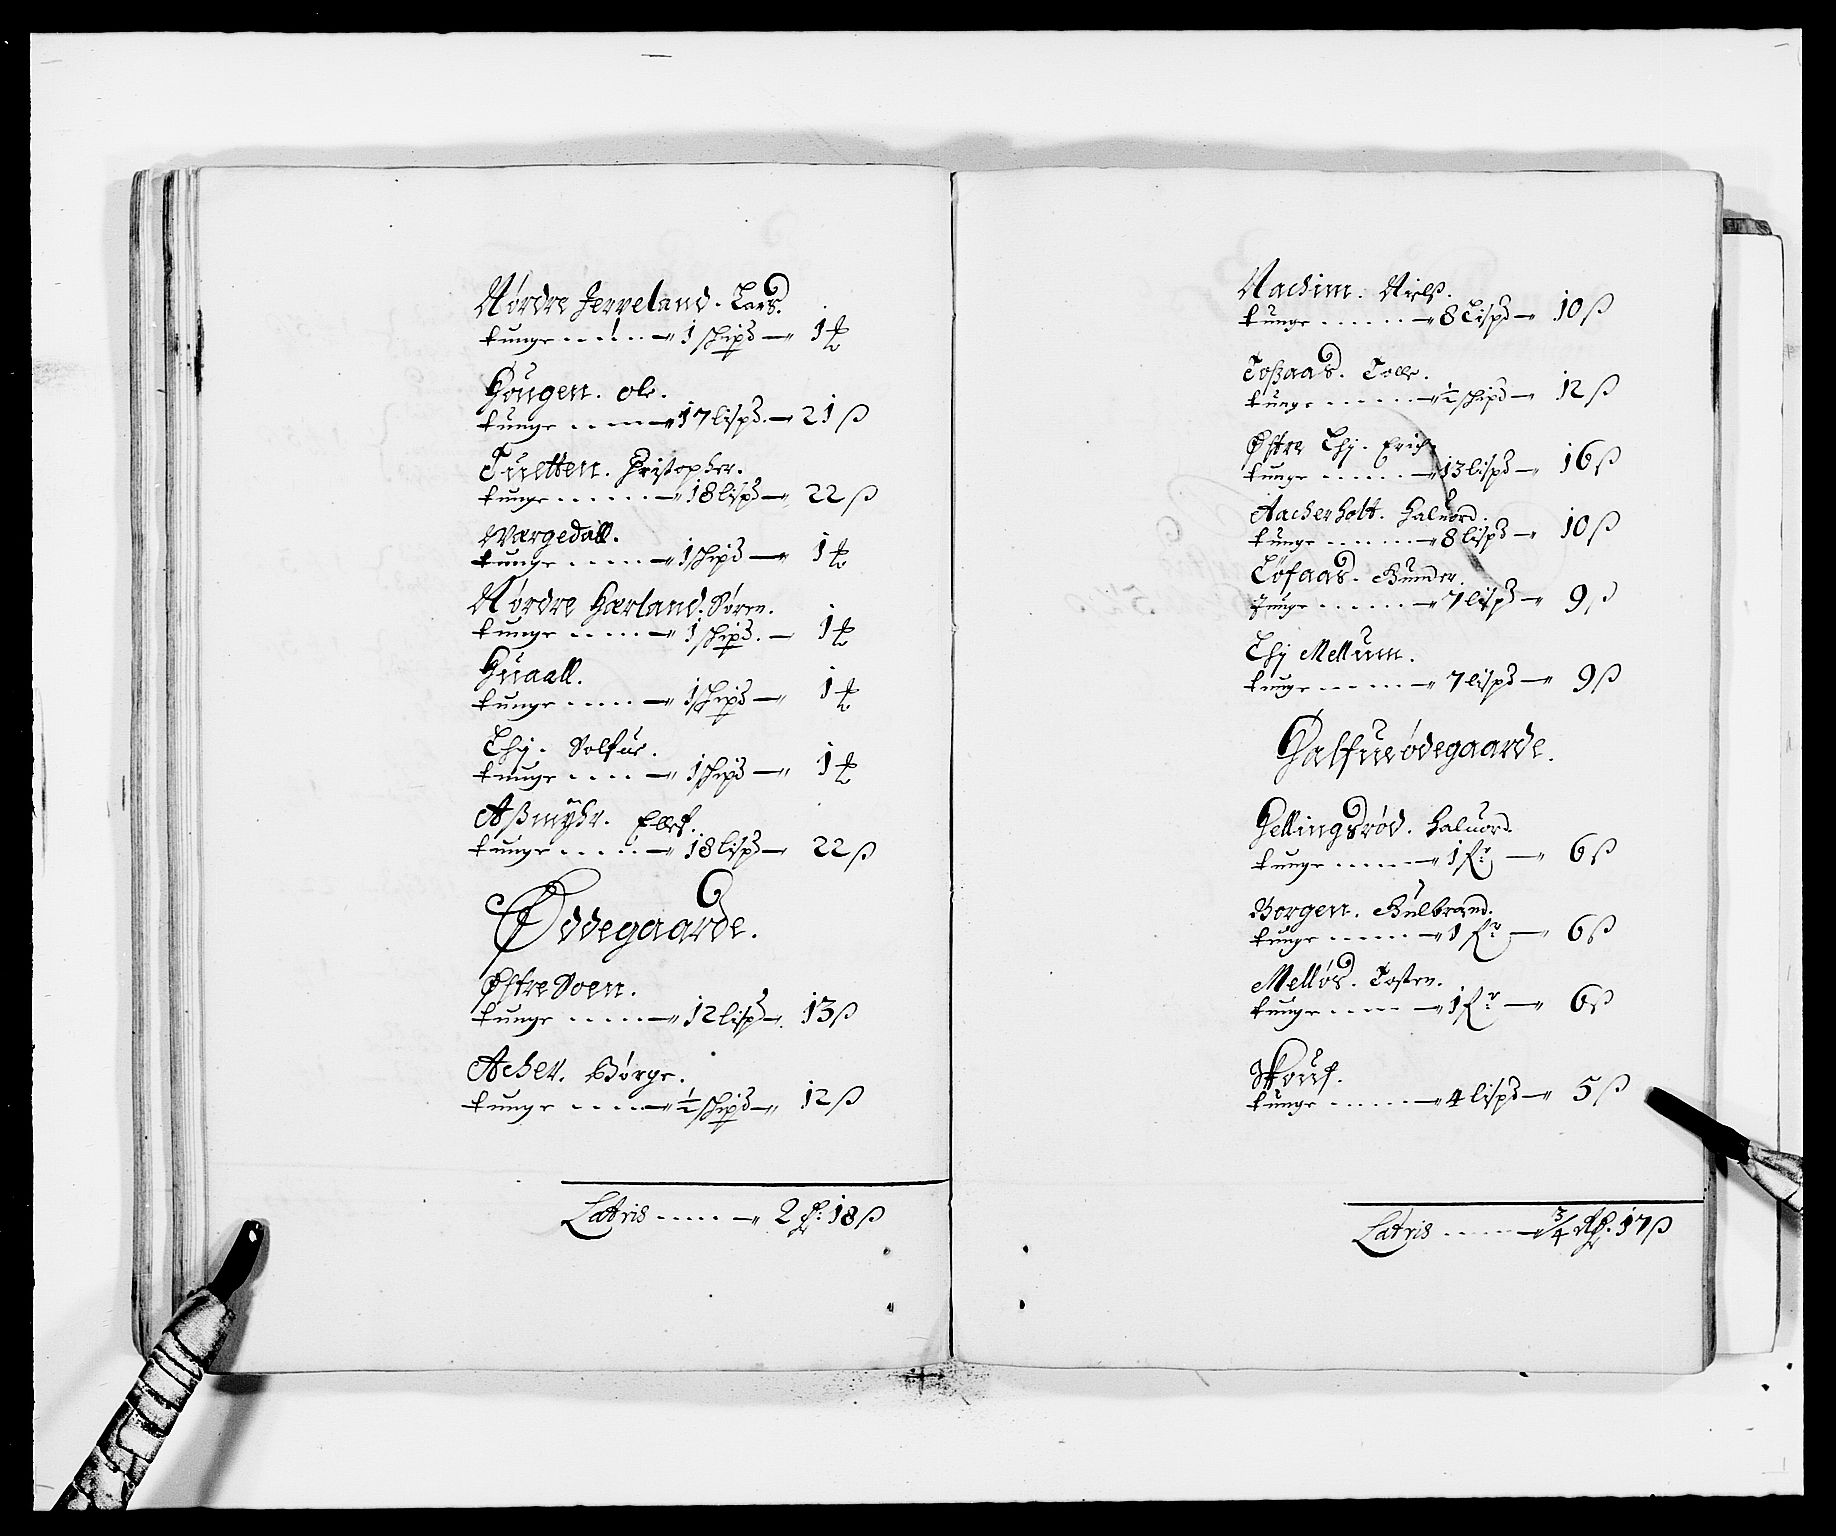 Nørdre Jerreland. Lars.
tunge ..... 1 skipd — 1 ℔
Hougen. Ole.
tunge .... 17 lispd. — 21 ß
Tuetten. Christopher.
tunge ...... 18 lispd — 22 ß
Wargedall.
tunge ..... 1 skipd — 1 ℔
Nørdre Harland. Søren.
tunge ..... 1 skipd. — 1 ℔
Huaall.
tunge ..... 1 skipd — 1 ℔
Lhj. Solfue.
tunge ..... 1 skipd — 1 ℔
Aßmyhr. Ellef.
tunge ..... 18 lispd — 22 ß
Ødegaarde.
Østre Soen.
tunge ..... 12 lispd — 13 ß
Acher. Børge.
tunge ..... ½ skipd — 12 ß
Latris ..... 2 18 ß
Nachim. Niels.
tunge ..... 8 Lispd — 10 ß
Toßaas. Tolle.
tunge ..... ½ skipd — 12 ß
Østre Lhj. Erich
tunge ..... 13 lispd — 16 ß
Aacherholt. Haluord.
tunge ..... 8 lispd — 10 ß
Løfaas. Gunder.
tunge ..... 7 lispd — 9 ß
Lhj Mellum.
tunge ..... 7 lispd — 9 ß
Halfueødegaarde.
Hellingsrød. Haluord.
tunge ..... 1 fr — 6 ß
Borgen. Gulbrand.
tunge ..... 1 fr — 6 ß
Melløs. Tosten.
tunge ..... 1 fr — 6 ß
Skouf.
tunge ..... 4 lispd — 5 ß
Latris ..... ¾ 17 ß